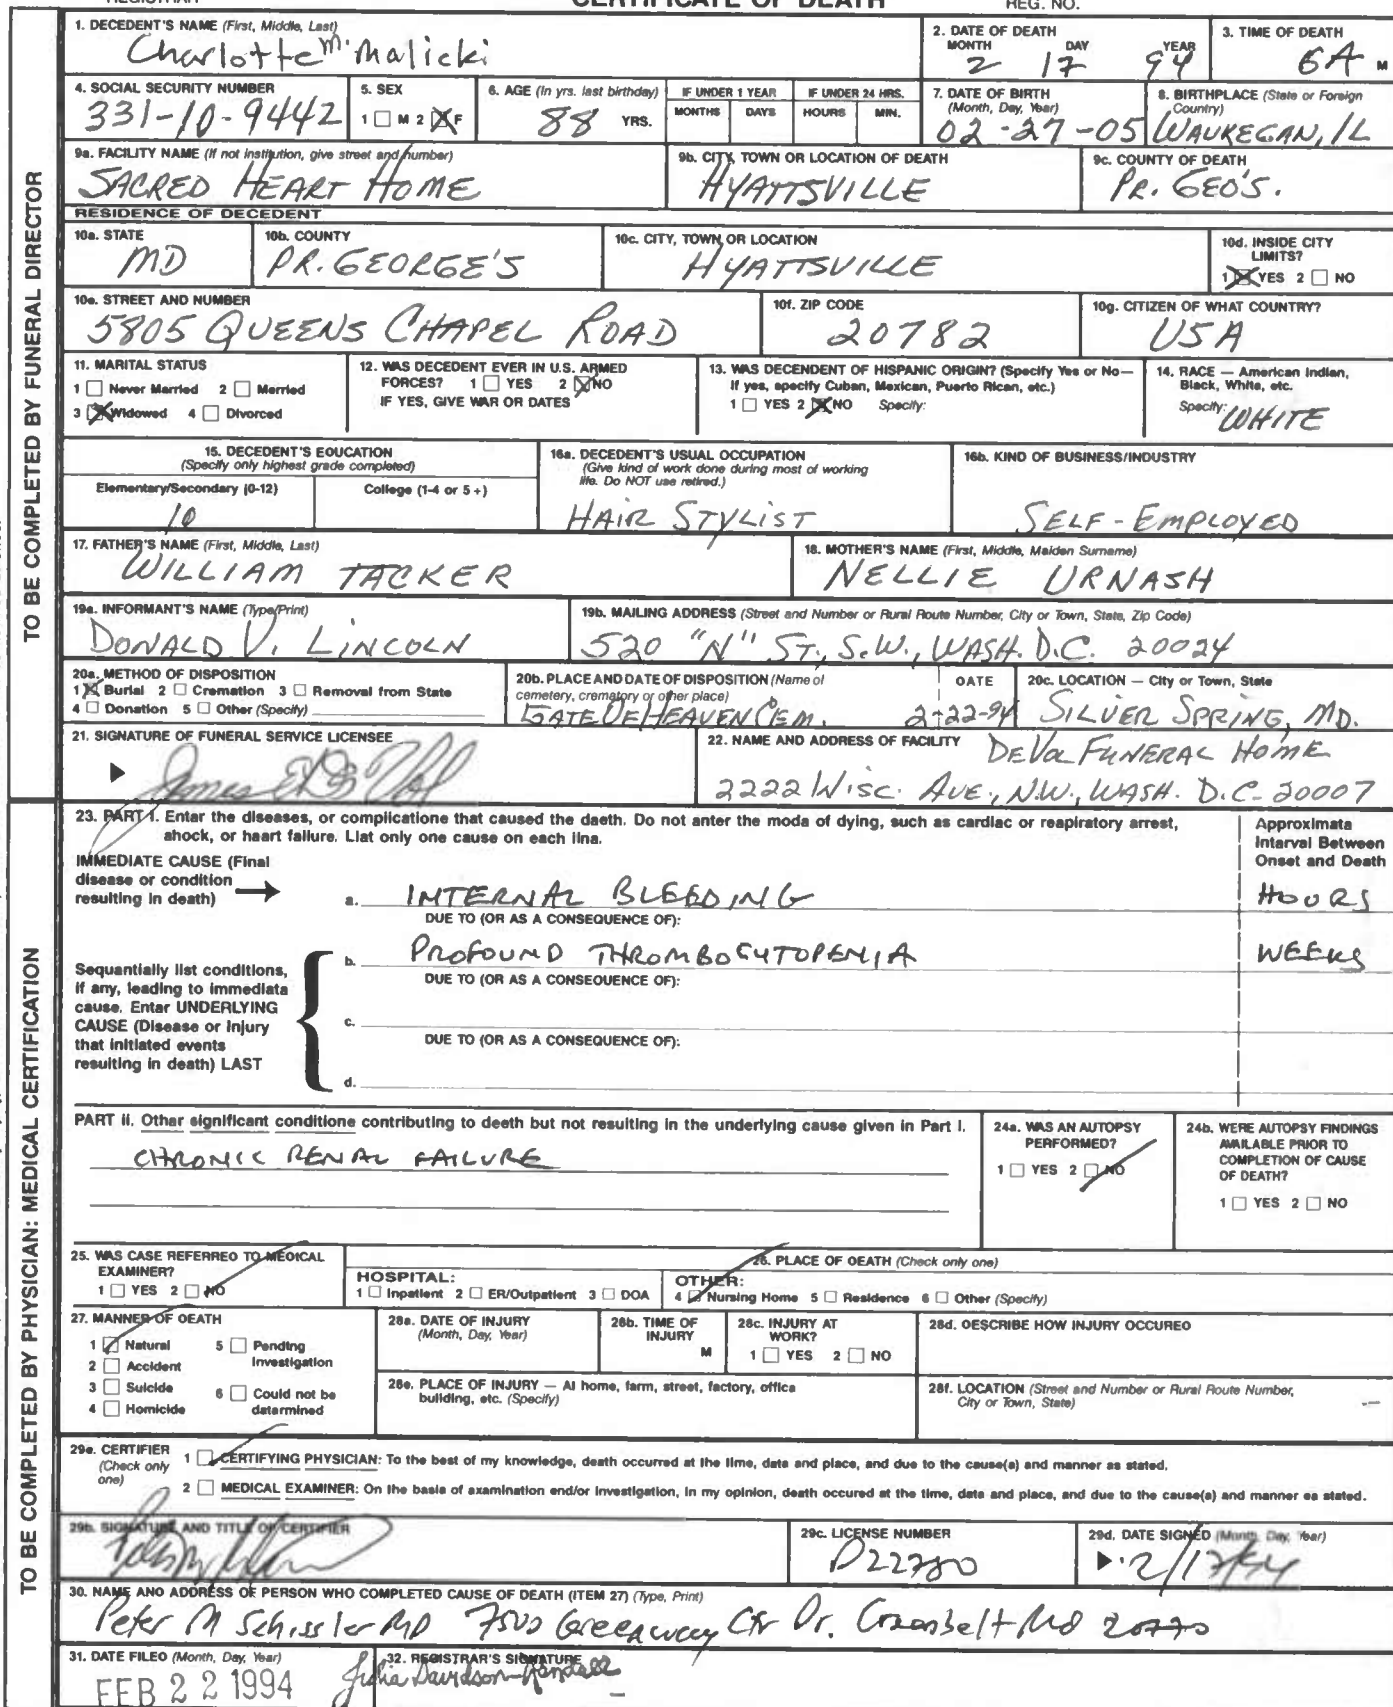 REGISTRAR
CERTIFICATE OF DEATH
REG. NO.
1. DECEDENT'S NAME (First, Middle, Last)
Charlotte M. Malicki
2. DATE OF DEATH
MONTH DAY YEAR
2 17 94
3. TIME OF DEATH
6A M
4. SOCIAL SECURITY NUMBER
331-10-9442
5. SEX
1 M 2 F
6. AGE (In yrs. last birthday)
88 YRS.
IF UNDER 1 YEAR
MONTHS DAYS
IF UNDER 24 HRS.
HOURS MIN.
7. DATE OF BIRTH
(Month, Day, Year)
02-27-05
8. BIRTHPLACE (State or Foreign
Country)
WAUKEGAN, IL
9a. FACILITY NAME (If not institution, give street and number)
SACRED HEART HOME
9b. CITY, TOWN OR LOCATION OF DEATH
HYATTSVILLE
9c. COUNTY OF DEATH
PR. GEO'S.
RESIDENCE OF DECEDENT
10a. STATE
MD
10b. COUNTY
PR. GEORGE'S
10c. CITY, TOWN, OR LOCATION
HYATTSVILLE
10d. INSIDE CITY
LIMITS?
1 YES 2 NO
10e. STREET AND NUMBER
5805 QUEENS CHAPEL ROAD
10f. ZIP CODE
20782
10g. CITIZEN OF WHAT COUNTRY?
USA
11. MARITAL STATUS
1 Never Married 2 Married
3 Widowed 4 Divorced
12. WAS DECEDENT EVER IN U.S. ARMED
FORCES? 1 YES 2 NO
IF YES, GIVE WAR OR DATES
13. WAS DECENDENT OF HISPANIC ORIGIN? (Specify Yes or No—
If yes, specify Cuban, Mexican, Puerto Rican, etc.)
1 YES 2 NO Specify:
14. RACE — American Indian,
Black, White, etc.
Specify: WHITE
15. DECEDENT'S EDUCATION
(Specify only highest grade completed)
Elementary/Secondary (0-12)
10
College (1-4 or 5+)
16a. DECEDENT'S USUAL OCCUPATION
(Give kind of work done during most of working
life. Do NOT use retired.)
HAIR STYLIST
16b. KIND OF BUSINESS/INDUSTRY
SELF-EMPLOYED
17. FATHER'S NAME (First, Middle, Last)
WILLIAM TACKER
18. MOTHER'S NAME (First, Middle, Maiden Surname)
NELLIE URNASH
19a. INFORMANT'S NAME (Type/Print)
DONALD V. LINCOLN
19b. MAILING ADDRESS (Street and Number or Rural Route Number, City or Town, State, Zip Code)
520 "N" ST., S.W., WASH. D.C. 20024
20a. METHOD OF DISPOSITION
1 Burial 2 Cremation 3 Removal from State
4 Donation 5 Other (Specify)
20b. PLACE AND DATE OF DISPOSITION (Name of
cemetery, crematory or other place)
DATE
GATE OF HEAVEN CEM. 2-22-94
20c. LOCATION — City or Town, State
SILVER SPRING, MD.
21. SIGNATURE OF FUNERAL SERVICE LICENSEE
22. NAME AND ADDRESS OF FACILITY DEVOL FUNERAL HOME
2222 WISC. AVE., N.W., WASH. D.C. 20007
TO BE COMPLETED BY FUNERAL DIRECTOR
23. PART I. Enter the diseases, or complications that caused the death. Do not enter the mode of dying, such as cardiac or respiratory arrest,
shock, or heart failure. List only one cause on each line.
Approximate
Interval Between
Onset and Death
IMMEDIATE CAUSE (Final
disease or condition
resulting in death)
a. INTERNAL BLEEDING
HOURS
DUE TO (OR AS A CONSEQUENCE OF):
b. PROFOUND THROMBOCYTOPENIA
WEEKS
DUE TO (OR AS A CONSEQUENCE OF):
Sequentially list conditions,
if any, leading to immediate
cause. Enter UNDERLYING
CAUSE (Disease or injury
that initiated events
resulting in death) LAST
c.
DUE TO (OR AS A CONSEQUENCE OF):
d.
PART II. Other significant conditions contributing to death but not resulting in the underlying cause given in Part I.
CHRONIC RENAL FAILURE
24a. WAS AN AUTOPSY
PERFORMED?
1 YES 2 NO
24b. WERE AUTOPSY FINDINGS
AVAILABLE PRIOR TO
COMPLETION OF CAUSE
OF DEATH?
1 YES 2 NO
25. WAS CASE REFERRED TO MEDICAL
EXAMINER?
1 YES 2 NO
26. PLACE OF DEATH (Check only one)
HOSPITAL:
1 Inpatient 2 ER/Outpatient 3 DOA
OTHER:
4 Nursing Home 5 Residence 6 Other (Specify)
27. MANNER OF DEATH
1 Natural 5 Pending
2 Accident Investigation
3 Suicide 6 Could not be
4 Homicide determined
28a. DATE OF INJURY
(Month, Day, Year)
28b. TIME OF
INJURY
M
28c. INJURY AT
WORK?
1 YES 2 NO
28d. DESCRIBE HOW INJURY OCCURED
28e. PLACE OF INJURY — At home, farm, street, factory, office
building, etc. (Specify)
28f. LOCATION (Street and Number or Rural Route Number,
City or Town, State)
29a. CERTIFIER
(Check only
one)
1 CERTIFYING PHYSICIAN: To the best of my knowledge, death occurred at the time, date and place, and due to the cause(s) and manner as stated.
2 MEDICAL EXAMINER: On the basis of examination and/or investigation, in my opinion, death occured at the time, date and place, and due to the cause(s) and manner as stated.
29b. SIGNATURE AND TITLE OF CERTIFIER
29c. LICENSE NUMBER
D22780
29d. DATE SIGNED (Month, Day, Year)
2/17/94
30. NAME AND ADDRESS OF PERSON WHO COMPLETED CAUSE OF DEATH (ITEM 27) (Type, Print)
Peter M Schissler MD 7500 Greenway Ctr Dr. Greenbelt Md 20770
31. DATE FILED (Month, Day, Year)
FEB 22 1994
32. REGISTRAR'S SIGNATURE
Julia Davidson-Randall
TO BE COMPLETED BY PHYSICIAN: MEDICAL CERTIFICATION